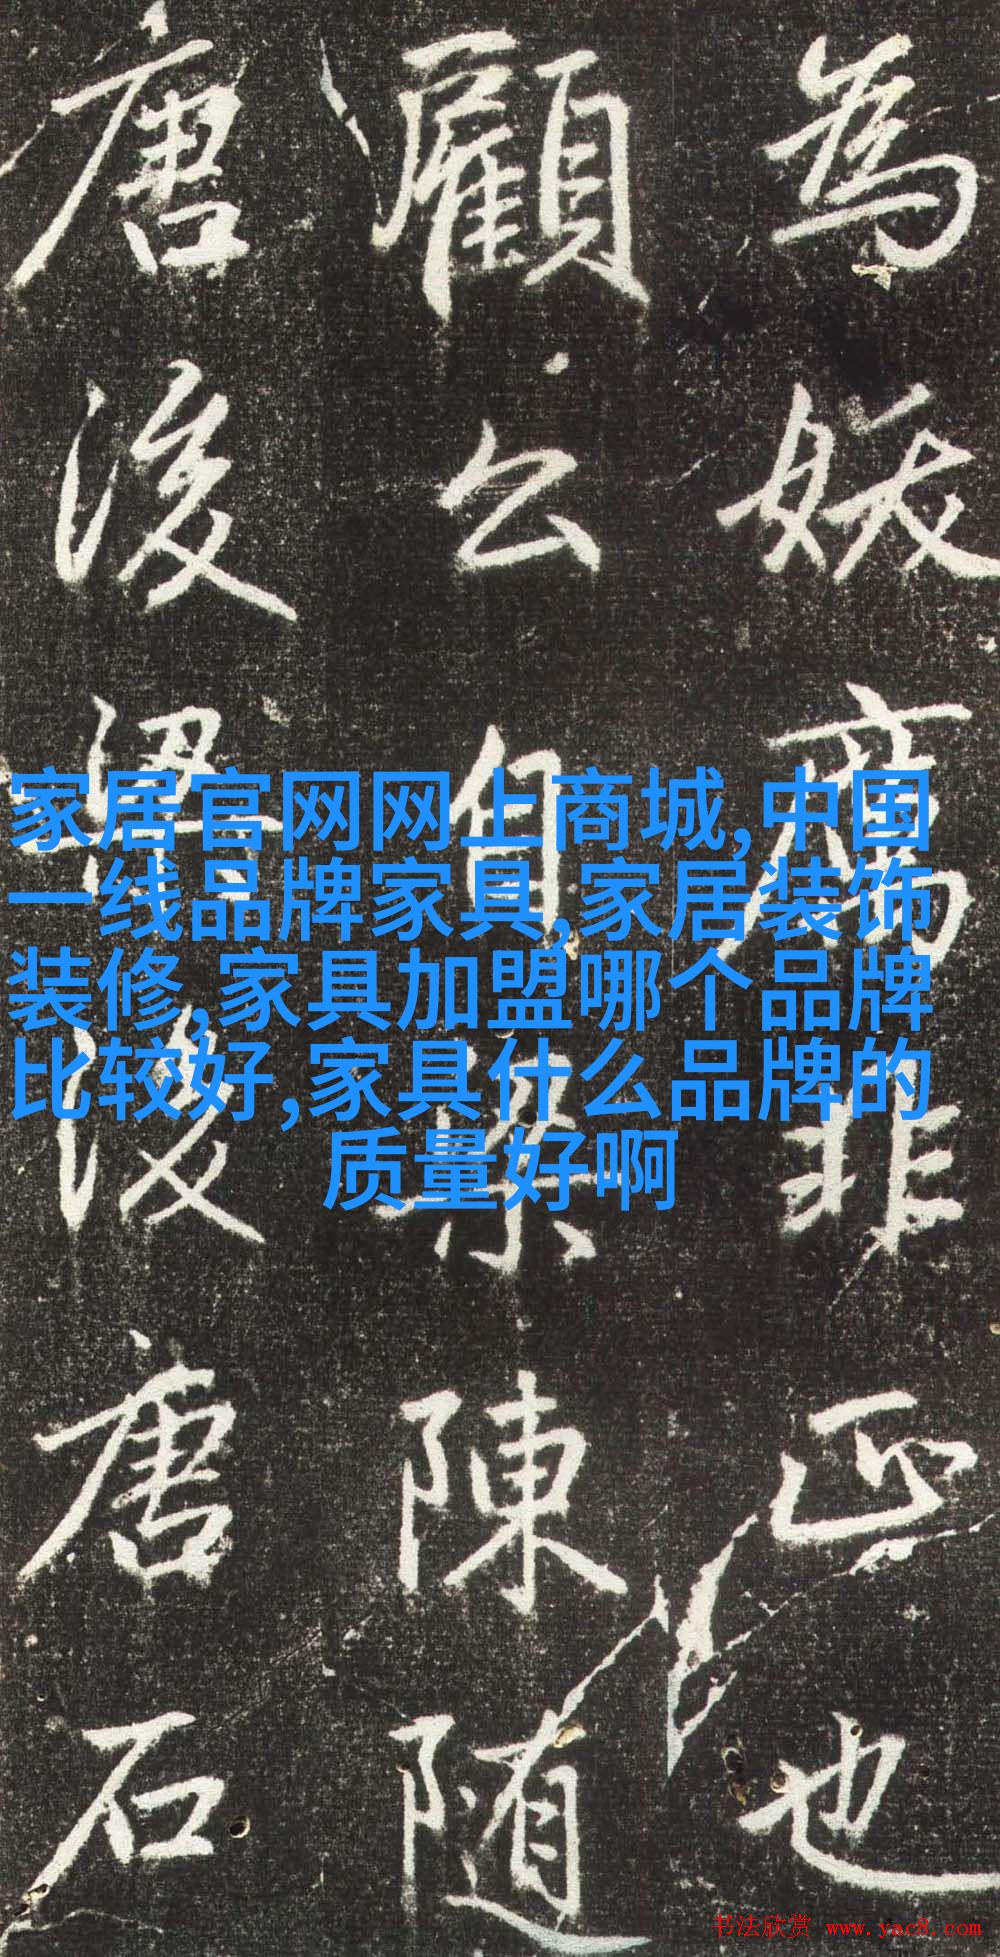 為妖厲非正也
顧公自梁陳隨
唐後後唐石
家居官网网上商城,中国
一线品牌家具,家居装饰
装修,家具加盟哪个品牌
比较好,家具什么品牌的
质量好啊
书法欣赏 www.yac8.com